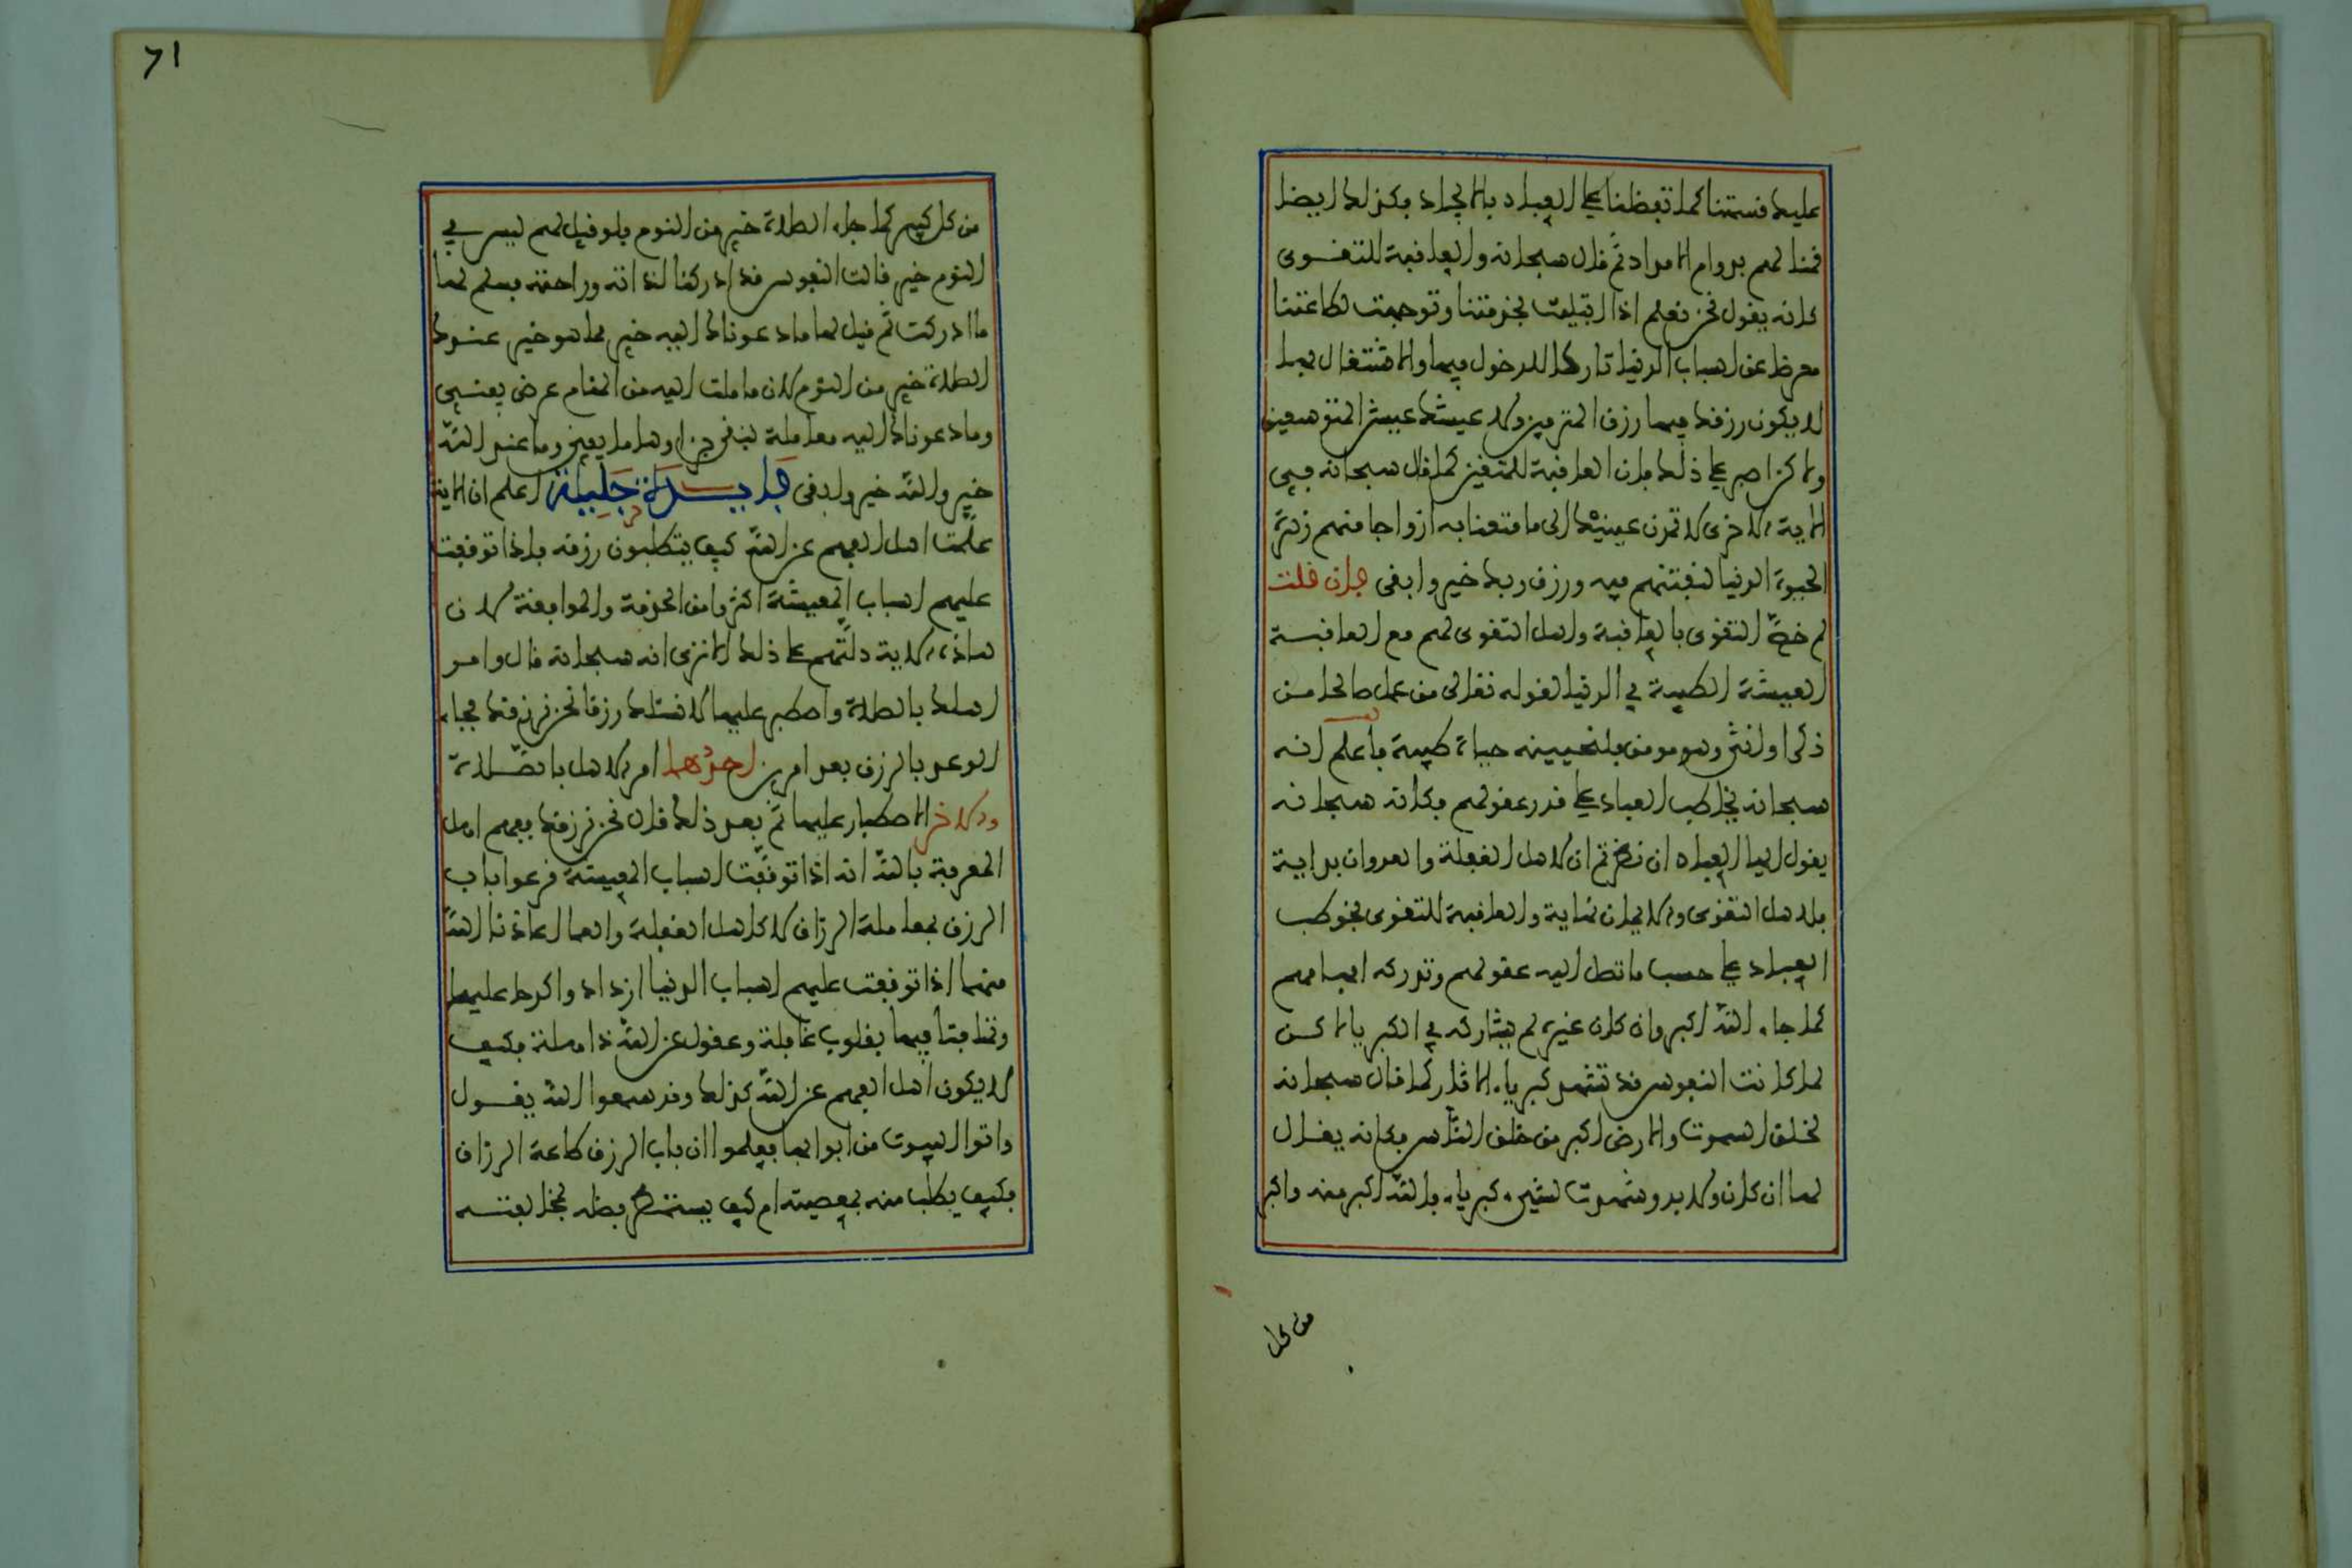 عليك قسمتنا كما تفضلنا على العباد بالايجاد فكذلك ايضا
قمنا لهم بدوام الامداد ثم قال سبحانه والعاقبة للتقوى
كانه يقول نحن نعلم اذا اقبلت بخدمتنا وتوجهت لطاعتنا
معرضا عن اسباب الدنيا تاركا للدخول فيها والاشتغال بها
لا يكون رزقك فيها رزق المترفين ولا عيشك عيش المتوسعين
ولاكن اصبر على ذلك فان العاقبة للمتقين كما قال سبحانه في
الاية الاخرى لا تمدن عينيك الى ما متعنا به ازواجا منهم زهرة
الحيوة الدنيا لنفتنهم فيه ورزق ربك خير وابقى فان قلت
لم خص التقوى بالعاقبة واهل التقوى لهم مع العاقبة
العيشة الطيبة في الدنيا لقوله تعالى من عمل صالحا من
ذكر او انثى وهو مومن فلنحيينه حياة طيبة فاعلم انه
سبحانه يخاطب العباد على قدر عقولهم فكانه سبحانه
يقول ايها العباد ان نظرتم ان لاهل الغفلة والعدوان بداية
فلاهل التقوى والايمان نهاية والعاقبة للتقوى فخوطب
العباد على حسب ما تصل اليه عقولهم وتدركه افهامهم
كما جاء الله اكبر وان كان غيره لم يشاركه في الكبرياء لاكن
لما كانت النفوس قد تشهد كبرياء الاثار كما قال سبحانه
لخلق السموت والارض اكبر من خلق الناس فكانه يقال
لها ان كان ولا بد وشهدت لشيء كبرياء فالله اكبر منه واكبر
من كل
71
من كل كبير كما جاء الصلاة خير من النوم فلو قيل لهم ليس في
النوم خير قالت النفوس قد ادركنا لذاته وراحته فسلم لها
ما ادركت ثم قيل لها ما دعوناك اليه خير مما هو خير عندك
الصلاة خير من النوم لان ما ملت اليه من المنام عرض يفنى
وما دعوناك اليه معاملة يبقى جزاوها ما يفنى وما عند الله
خير والله خير وابقى فايدة جليلة اعلم ان الاية
علمت اهل الفهم عن الله كيف يتطلبون رزقه فاذا توقفت
عليهم اسباب المعيشة اكثروا من الخدمة والموافقة لان
هاذه الاية دلتهم على ذلك الا ترى انه سبحانه قال وامر
اهلك بالصلاة واصطبر عليها لا نسئلك رزقا نحن نرزقك فجاء
الوعد بالرزق بعد امرين احدهما امر الاهل بالصلاة
والاخر الاصطبار عليها ثم بعد ذلك قال نحن نرزقك ففهم اهل
المعرفة بالله انه اذا توقفت اسباب المعيشة قرعوا باب
الرزق بمعاملة الرزاق لا كاهل الغفلة والعما اعاذنا الله
منهما اذا توقفت عليهم اسباب الدنيا ازدادوا كدحا عليها
وتهافتا فيها بقلوب غافلة وعقول عن الله ذاهلة فكيف
لا يكون اهل الفهم عن الله كذلك وقد سمعوا الله يقول
واتوا البيوت من ابوابها فعلموا ان باب الرزق طاعة الرزاق
فكيف يطلب منه بمعصيته ام كيف يستمطر فضله بمخالفته